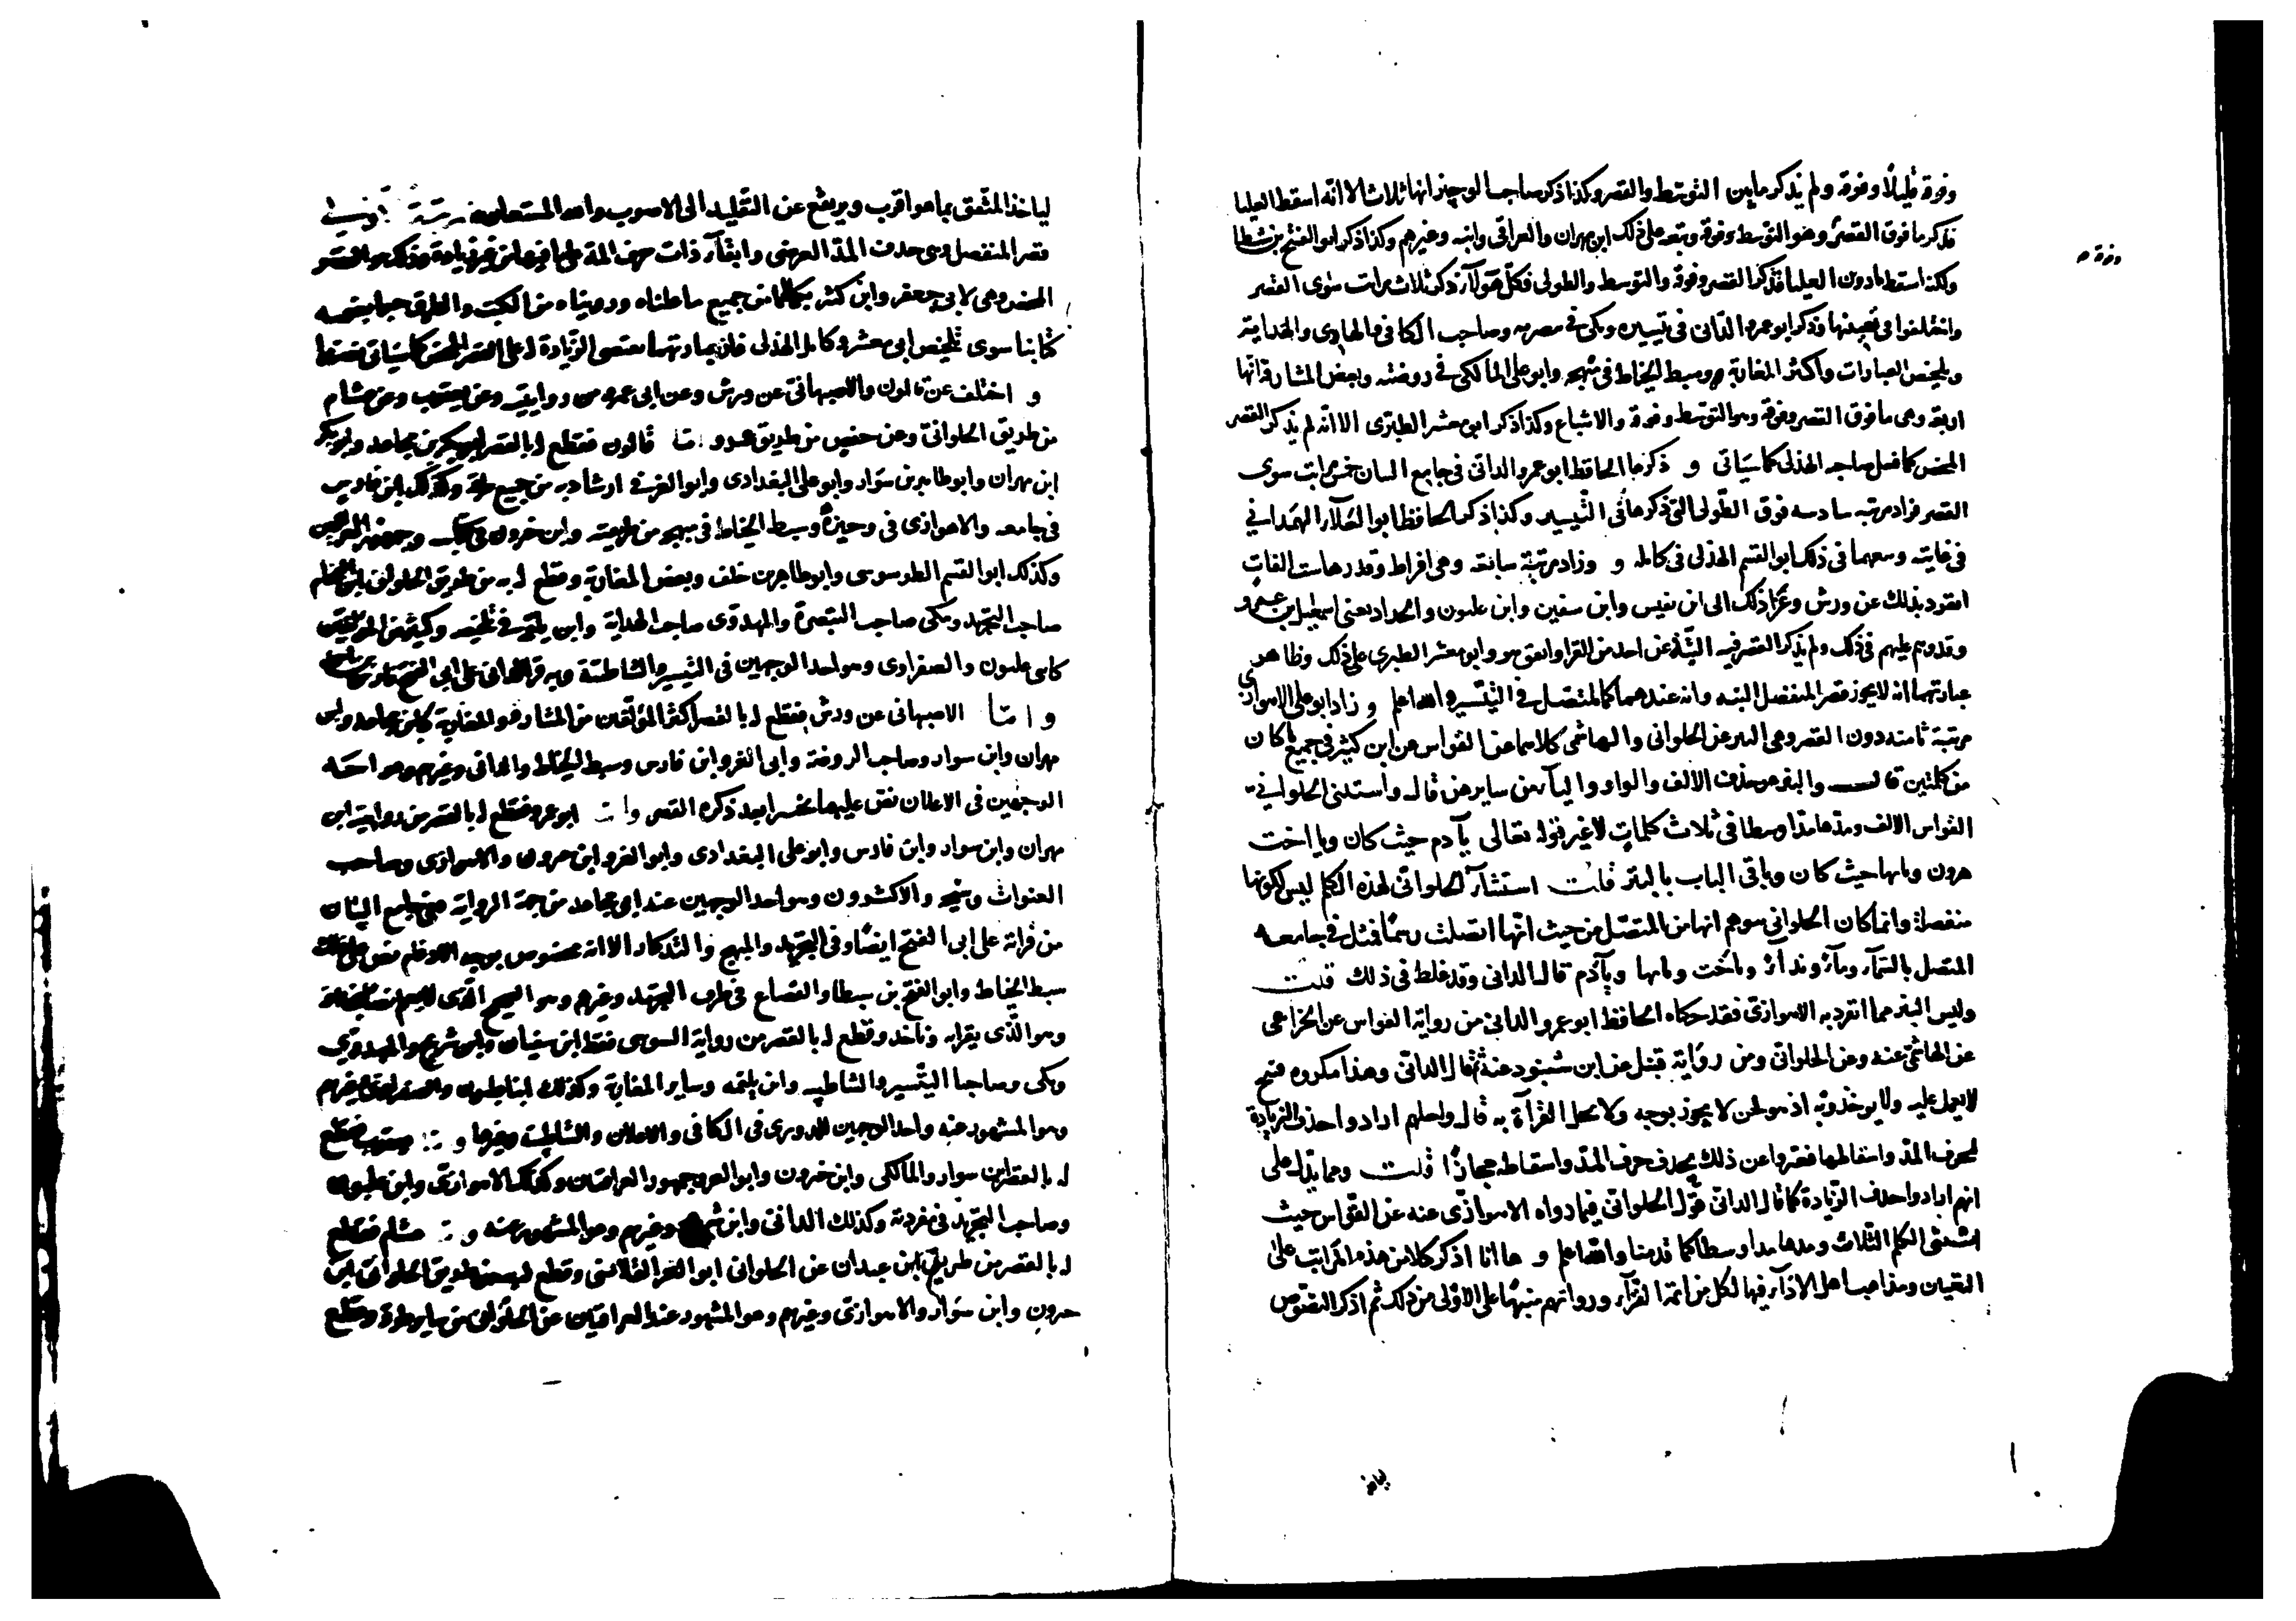 وفوقه قليلًا وفوقه ولم يذكر ما بين التوسط والقصر وكذا ذكر صاحب الوجيز انها ثلاث الا انه اسقط العليا
فذكر ما فوق القصر وهو التوسط وفوقه وتبعه على ذلك ابن مهران والعراقي وابنه وغيرهم وكذا ذكر ابو الفتح بن شيطا
ولكنه اسقط ما دون العليا فذكر القصر وفوقه والتوسط والطولى فكل هؤلآء ذكر ثلاث مراتب سوى القصر
واختلفوا في تعيينها وذكر ابو عمرو الداني في تيسيره ومكي في تبصرته وصاحب الكافي والهادي والهداية
وتلخيص العبارات واكثر المغاربة وسبط الخياط في مبهجه وابو علي المالكي في روضته وبعض المشارقة انها
اربعة وهي ما فوق القصر وفوقه وهو التوسط وفوقه والاشباع وكذا ذكر ابو معشر الطبري الا انه لم يذكر القصر
المحض كما فعل صاحبه الهذلي كما سياتي و ذكرها الحافظ ابو عمرو الداني في جامع البيان خمس مراتب سوى
القصر فزاد مرتبه سادسه فوق الطولى التي ذكرها في التيسير وكذا ذكر الحافظ ابو العلآء الهمداني
في غايته وتبعهما في ذلك ابو القسم الهذلي في كامله و وزاد مرتبة سابعة وهي افراط وقدرها ست الفات
انفرد بذلك عن ورش وعزا ذلك الى ابن نفيس وابن سفين وابن غلبون والحداد يعني اسمعيل بن عمرو
وقد وهم عليهم في ذلك ولم يذكر القصر فيه البتة عن احد من القرا واتفق هو وابو معشر الطبري على ذلك وظاهر
عبارتهما انه لا يجوز قصر المنفصل البته وانه عندهما كالمتصل في التيسير والله اعلم و زاد ابو علي الاهوازي
مرتبة ثامنه دون القصر وهي البتر عن الحلواني والهاشمي كلاهما عن القواس عن ابن كثير في جميع ما كان
من كلمتين قال والبتر هو حذف الالف والواو واليآء من سايرهن قال واستثنى الحلواني عن
القواس الالف ومدها مدا وسطا في ثلاث كلمات لا غير قوله تعالى يآدم حيث كان ويا اخت
هرون وياايها حيث كان وباقي الباب بالبتر قلت استثنآء الحلواني لهذه الكلم ليس لكونها
منفصلة وانما كان الحلواني يتوهم انها من المتصل من حيث انها اتصلت رسمًا فمثل في جامعه
المتصل بالسمآء ومآء ونداء وياخت وياايها ويآدم قال الداني وقد غلط في ذلك قلت
وليس البتر مما انفرد به الاهوازي فقد حكاه الحافظ ابو عمرو الداني من رواية القواس عن الخزاعي
عن الهاشمي عنه وعن الحلواني ومن رواية قنبل عن ابن شنبوذ عنه ثم قال الداني وهذا مكروه قبيح
لا يعمل عليه ولا يوخذ به اذ هو لحن لا يجوز بوجه ولا تحل القرآة به قال ولعلهم ارادوا حذف الزيادة
لحرف المد واسقاطها فعبروا عن ذلك بحذف حرف المد واسقاطه مجازًا قلت ومما يدل على
انهم ارادوا حذف الزيادة كما قال الداني قول الحلواني فيما رواه الاهوازي عنه عن القواس حيث
استثنى الكلم الثلاث ومدها مدا وسطا كما قدمنا والله اعلم و ها انا اذكر كلا من هذه المراتب على
التعيين ومذاهب اهل الادآء فيها لكل من ائمة القرآء ورواتهم منبهًا على الاولى من ذلك ثم اذكر النصوص
لياخذ
وفوقه
لياخذ المتقن بما هو اقرب ويرتفع عن التقليد الى الاصوب والله المستعان
قصر المنفصل وهي حذف المد العرضي وابقآء ذات حرف المد على ما فيها من غير زيادة وذلك هو القصر
المحض وهي لابي جعفر وابن كثير بكمالهما من جميع ما علمناه ورويناه من الكتب والطرق حسبما تضمنه
كتابنا سوى تلخيص ابي معشر وكامل الهذلي فان عبارتهما تقتضي الزيادة له على القصر المحض كما سياتي
و اختلف عن قالون والاصبهاني عن ورش وعن ابي عمرو من روايتيه وعن يعقوب وعن هشام
من طريق الحلواني وعن حفص من طريق عمرو اما قالون فقطع له بالقصر ابو بكر بن مجاهد وابو بكر
ابن مهران وابو طاهر بن سوار وابو علي البغدادي وابو العز في ارشاديه من جميع طرقه وكذلك ابن فارس
في جامعه والاهوازي في وجيزه وسبط الخياط في مبهجه من طريقيه وابن خيرون في كتابيه وجمهور العراقيين
وكذلك ابو القسم الطرسوسي وابو طاهر بن خلف وبعض المغاربة وقطع له به من طريق الحلواني ابن الفحام
صاحب التجريد ومكي صاحب التبصرة والمهدوي صاحب الهداية وابن بليمة في تلخيصه وكثير من المؤلفين
كابني غلبون والصفراوي وهو احد الوجهين في التيسير والشاطبية وبه قرا الداني على ابي الفتح فارس بن احمد
و اما الاصبهاني عن ورش فقطع له بالقصر اكثر المؤلفين من المشارقة والمغاربة كابن مجاهد وابن
مهران وابن سوار وصاحب الروضة وابي العز وابن فارس وسبط الخياط والداني وغيرهم وهو احد
الوجهين في الاعلان نص عليهما تخييرا بعد ذكره القصر واما ابو عمرو فقطع له بالقصر من روايتيه ابن
مهران وابن سوار وابن فارس وابو علي البغدادي وابو العز وابن خيرون والاهوازي وصاحب
العنوان وشيخه والاكثرون وهو احد الوجهين عند ابن مجاهد من جهة الرواية وفي جامع البيان
من قراته على ابي الفتح ايضًا وفي التجريد والمبهج والتذكار الا انه مخصوص بوجه الادغام نص على ذلك
سبط الخياط وابو الفتح بن شيطا والقصاع في طرق التجريد وغيرهم وهو الصحيح الذي لا نعلم نصا بخلافه
وهو الذي نقرا به وناخذ وقطع له بالقصر من رواية السوسي فقط ابن سفيان وابن شريح والمهدوي
ومكي وصاحبا التيسير والشاطبيه وابن بليمه وساير المغاربة وكذلك ابنا غلبون والصفراوي وغيرهم
وهو المشهور عنه واحد الوجهين للدوري في الكافي والاعلان والشاطبية وغيرها و اما يعقوب فقطع
له بالقصر ابن سوار والمالكي وابن خيرون وابو العز وجمهور العراقيين وكذلك الاهوازي وابن غلبون
وصاحب التجريد في مفردته وكذلك الداني وابن شريح وغيرهم وهو المشهور عنه و اما هشام فقطع
له بالقصر من طريق ابن عبدان عن الحلواني ابو العز القلانسي وقطع له به من طريق الحلواني ابن
خيرون وابن سوار والاهوازي وغيرهم وهو المشهور عند العراقيين عن الحلواني من ساير طرقه وقطع